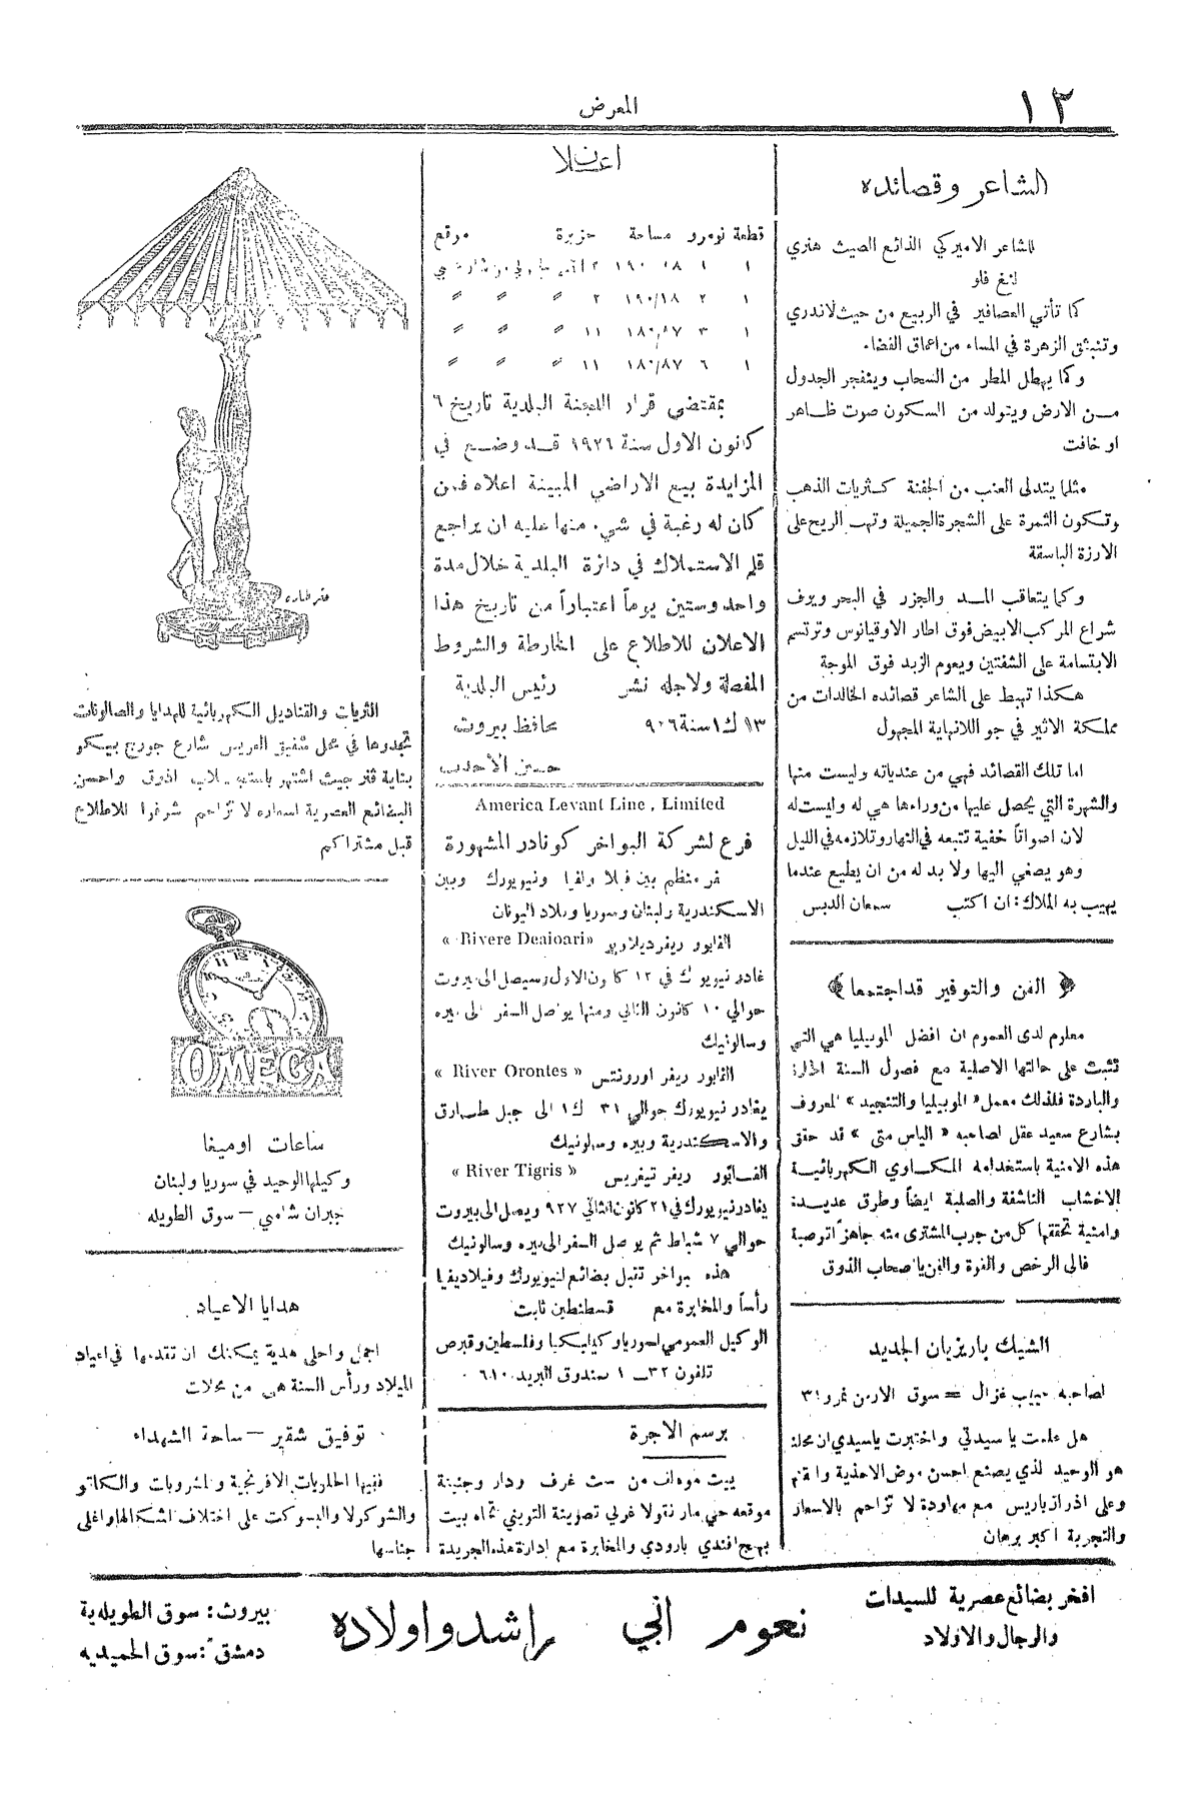 ١٢
المعرض
الشاعر وقصائده
للشاعر الاميركي الذائع الصيت هنري
لنغ فلو
كما تأتي العصافير في الربيع من حيث لاندري
وتنبثق الزهرة في المساء من اعماق الفضاء
وكما يهطل المطر من السحاب ويتفجر الجدول
مـن الارض ويتولد من السكون صوت ظـاهر
او خافت
مثلما يتدلى العنب من الجفنة كـثريات الذهب
وتـكون الثمرة على الشجرة الجميلة وتهب الريح على
الارزة الباسقة
وكما يتعاقب المـد والجزر في البحر ويرف
شراع المركب الابيض فوق اطار الاوقيانوس وترتسم
الابتسامة على الشفتين ويعوم الزبد فوق الموجة
هـكذا تهبط على الشاعر قصائده الخالدات من
مملكة الاثير في جو اللانهاية المجهول
اما تلك القصائد فهي من عندياته وليست منها
والشهرة التي يحصل عليها من وراءها هي له وليست له
لان اصواتاً خفية تتبعه في النهار وتلازمه في الليل
وهو يصغي اليها ولا بد له من ان يطيع عندما
يهيب به الملاك : ان اكتب سمعان الدبس
﴿ الفن والتوفير قد اجتمعا ﴾
معلوم لدى العموم ان افضل الموبيليا هي التي
تثبت على حالتها الاصلية مع فصول السنة الحارة
والباردة فلذلك معمل « الموبيليا والتنجيد » المعروف
بشارع سعيد عقل لصاحبه « الياس متى » قد حقق
هذه الامنية باستخدامه المكـاوي الكهربائيـة
للاخشاب الناشفة والصلبة ايضاً وطرق عديـدة
وامنية تحققها كل من جرب المشترى منه جاهزاً توصية
فالى الرخص والفرة والفن يا صحاب الذوق
الشيك باريزيان الجديد
لصاحبه حبيب غزال = سوق الارمن نمرو ٣١
هل علمت يا سيدتي واختبرت يا سيدي ان محله
هو الوحيد الذي يصنع احسن موض الاحذية واتقنه
وعلى اذراز باريس مع مهاودة لا تزاحم بالاسعار
والتجربة اكبر برهان
اعـلان
قطعة نومرو مساحة حزيرة موقع
١ ٢ ١٩٠/١٨ ٢ » » »
١ ٣ ١٨٠/٨٧ ١١ » » »
١ ٦ ١٨٠/٨٧ ١١ » » »
بمقتضى قرار اللجنة البلدية تاريخ ٦
كانون الاول سنة ١٩٢٦ قـد وضـع في
المزايدة بيع الاراضي المبينة اعلاه فمن
كان له رغبة في شيء منها عليه ان يراجع
قلم الاستملاك في دائرة البلدية خلال مدة
واحد وستين يوماً اعتباراً من تاريخ هذا
الاعلان للاطلاع على الخارطة والشروط
المفصلة ولاجله نشر رئيس البلدية
١٣ ك١ سنة ٩٢٦ محافظ بيروت
حسن الأحدب
America Levant Line, Limited
فرع لشركة البواخر كونادر المشهورة
سفر منتظم بين فيلادلفيا ونيويورك وبين
الاسكندرية ولبنان وسوريا وبلاد اليونان
الفابور ريفر ديلاوير « Rivere Deaioari »
غادر نيويورك في ١٢ كانون الاول وسيصل الى بيروت
حوالي ١٠ كانون الثاني ومنها يواصل السفر الى بيره
وسالونيك
الفابور ريفر اورونتس « River Orontes »
يغادر نيويورك حوالي ٣١ ك١ الى جبل طارق
والاسكندرية وبيره وسالونيك
الفـابور ريفر تيغريس « River Tigris »
يغادر نيويورك في ٢١ كانون الثاني ٩٢٧ ويصل الى بيروت
حوالي ٧ شباط ثم يواصل السفر الى بيره وسالونيك
هذه بواخر تقبل بضائع لنيويورك وفيلاديفيا
رأساً والمخابرة مع قسطنطين ثابت
الوكيل العمومي لسوريا وكيليكيا وفلسطين وقبرص
تلفون ٣٢ــ١ صندوق البريد ٦١٠
برسم الاجرة
بيت مؤلف من ست غرف ودار وجنينة
موقعه حي مار نقولا غربي تصوينة التويني تجاه بيت
بهيج افندي بارودي والمخابرة مع ادارة هذه الجريدة
الثريات والقناديل الكهربائية للهدايا والصالونات
تجدوها في محل شفيق العريس شارع جورج بيكو
بناية فتر حيث اشتهر باستجلاب اذوق واحسن
البضائع العصرية اسعاره لا تزاحم شرفوا للاطلاع
قبل مشتراكم
OMEGA
ساعات اوميغا
وكيلها الوحيد في سوريا ولبنان
جبران شامي – سوق الطويله
هدايا الاعياد
اجمل واحلى هدية يمكنك ان تقدمها في اعياد
الميلاد ورأس السنة هي من محلات
توفيق شقير – ساحة الشهداء
ففيها الحلويات الافرنجية والمشروبات والكاتو
والشوكولا والبسكوت على اختلاف اشكالها واغلى
جناسها
افخر بضائع عصرية للسيدات
والرجال والاولاد
نعوم ابي راشد واولاده
بيروت : سوق الطويلهية
دمشق : سوق الحميديه